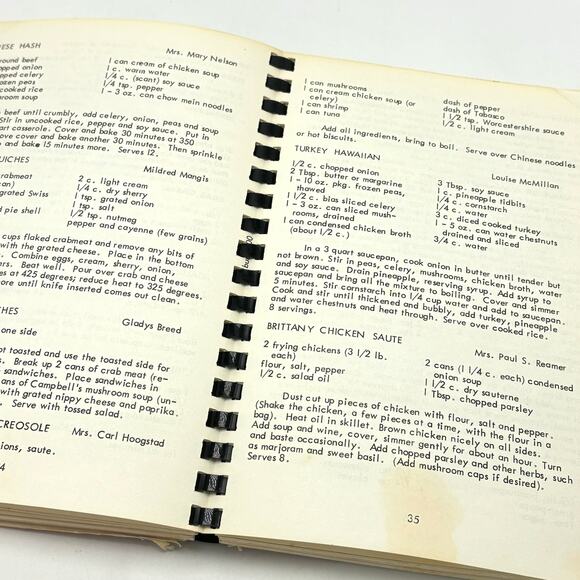 ESE HASH
Mrs. Mary Nelson
round beef
opped onion
pped celery
ozen peas
ncooked rice
hroom soup
1 can cream of chicken soup
1 c. warm water
1/4 c. (scant) soy sauce
1/4 tsp. pepper
1 - 3 oz. can chow mein noodles
beef until crumbly, add celery, onion, peas and soup
Stir in uncooked rice, pepper and soy sauce. Put in
art casserole. Cover and bake 30 minutes at 350
ove cover and bake another 30 minutes. Then sprinkle
p and bake 15 minutes more. Serves 12.
UICHES
Mildred Mangis
crabmeat
can)
grated Swiss
d pie shell
2 c. light cream
1/4 c. dry sherry
1 tsp. grated onion
1 tsp. salt
1/2 tsp. nutmeg
pepper and cayenne (few grains)
cups flaked crabmeat and remove any bits of
with the grated cheese. Place in the bottom
. Combine eggs, cream, sherry, onion,
ars. Beat well. Pour over crab and cheese
es at 425 degrees; reduce heat to 325 degrees.
ore until knife inserted comes out clean.
CHES
Gladys Breed
one side
ot toasted and use the toasted side for
s. Break up 2 cans of crab meat (re-
sandwiches. Place sandwiches in
ans of Campbell's mushroom soup (un-
with grated nippy cheese and paprika.
. Serve with tossed salad.
CREOSOLE
Mrs. Carl Hoogstad
ions, saute.
4
1 can mushrooms
1 can cream chicken soup (or
celery)
1 can shrimp
1 can tuna
dash of pepper
dash of Tabasco
1 1/2 tsp. Worcestershire sauce
1/2 c. light cream
Add all ingredients, bring to boil. Serve over Chinese noodles
or hot biscuits.
TURKEY HAWAIIAN
Louise McMillan
1/2 c. chopped onion
2 Tbsp. butter or margarine
1 - 10 oz. pkg. frozen peas,
thawed
1/2 c. bias sliced celery
1 - 3 oz. can sliced mush-
rooms, drained
1 can condensed chicken broth
(about 1/2 c.)
3 Tbsp. soy sauce
1 c. pineapple tidbits
1/4 c. cornstarch
1/4 c. water
3 c. diced cooked turkey
1 - 5 oz. can water chestnuts
drained and sliced
3/4 c. water
In a 3 quart saucepan, cook onion in butter until tender but
not brown. Stir in peas, celery, mushrooms, chicken broth, water
and soy sauce. Drain pineapple, reserving syrup. Add syrup to
saucepan and bring all the mixture to boiling. Cover and simmer
5 minutes. Stir cornstarch into 1/4 cup water and add to saucepan.
Cook and stir until thickened and bubbly, add turkey, pineapple
and water chestnuts and heat through. Serve over cooked rice.
8 servings.
BRITTANY CHICKEN SAUTE
Mrs. Paul S. Reamer
2 frying chickens (3 1/2 lb.
each)
flour, salt, pepper
1/2 c. salad oil
2 cans (1 1/4 c. each) condensed
onion soup
1 1/2 c. dry sauterne
1 Tbsp. chopped parsley
Dust cut up pieces of chicken with flour, salt and pepper.
(Shake the chicken, a few pieces at a time, with the flour in a
bag). Heat oil in skillet. Brown chicken nicely on all sides.
Add soup and wine, cover, simmer gently for about an hour. Turn
and baste occasionally. Add chopped parsley and other herbs, such
as marjoram and sweet basil. (Add mushroom caps if desired).
Serves 8.
35